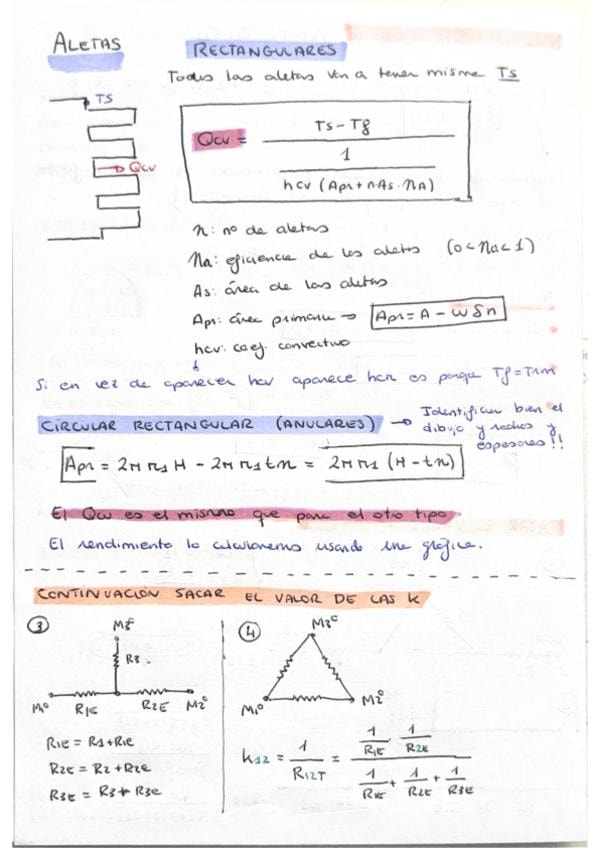 ALETAS
RECTANGULARES
Todas las aletas van a tener misma Ts
TS
Qcv
Qcv = Ts - Tf / 1 / hcv (Apr + n·As·ηa)
n: nº de aletas
ηa: eficiencia de las aletas (0 < ηa < 1)
As: área de las aletas
Apr: área primaria → Apr = A - ωδn
hcv: coef. convectivo
Si en vez de aparecer hcv aparece hcr es porque Tf = Trm
CIRCULAR RECTANGULAR (ANULARES) → Identificar bien el
dibujo y radios y
espesores!!
Apr = 2πr1H - 2πr1tn = 2πr1 (H - tn)
El Qcv es el mismo que para el otro tipo
El rendimiento lo calcularemos usando una gráfica.
CONTINUACIÓN SACAR EL VALOR DE LAS K
3
M3º
R3
M1º R1E R2E M2º
R1E = R1 + R1e
R2E = R2 + R2e
R3E = R3 + R3e
4
M3º
M1º M2º
K12 = 1 / R12T = 1/R1E · 1/R2E / 1/R1E + 1/R2E + 1/R3E